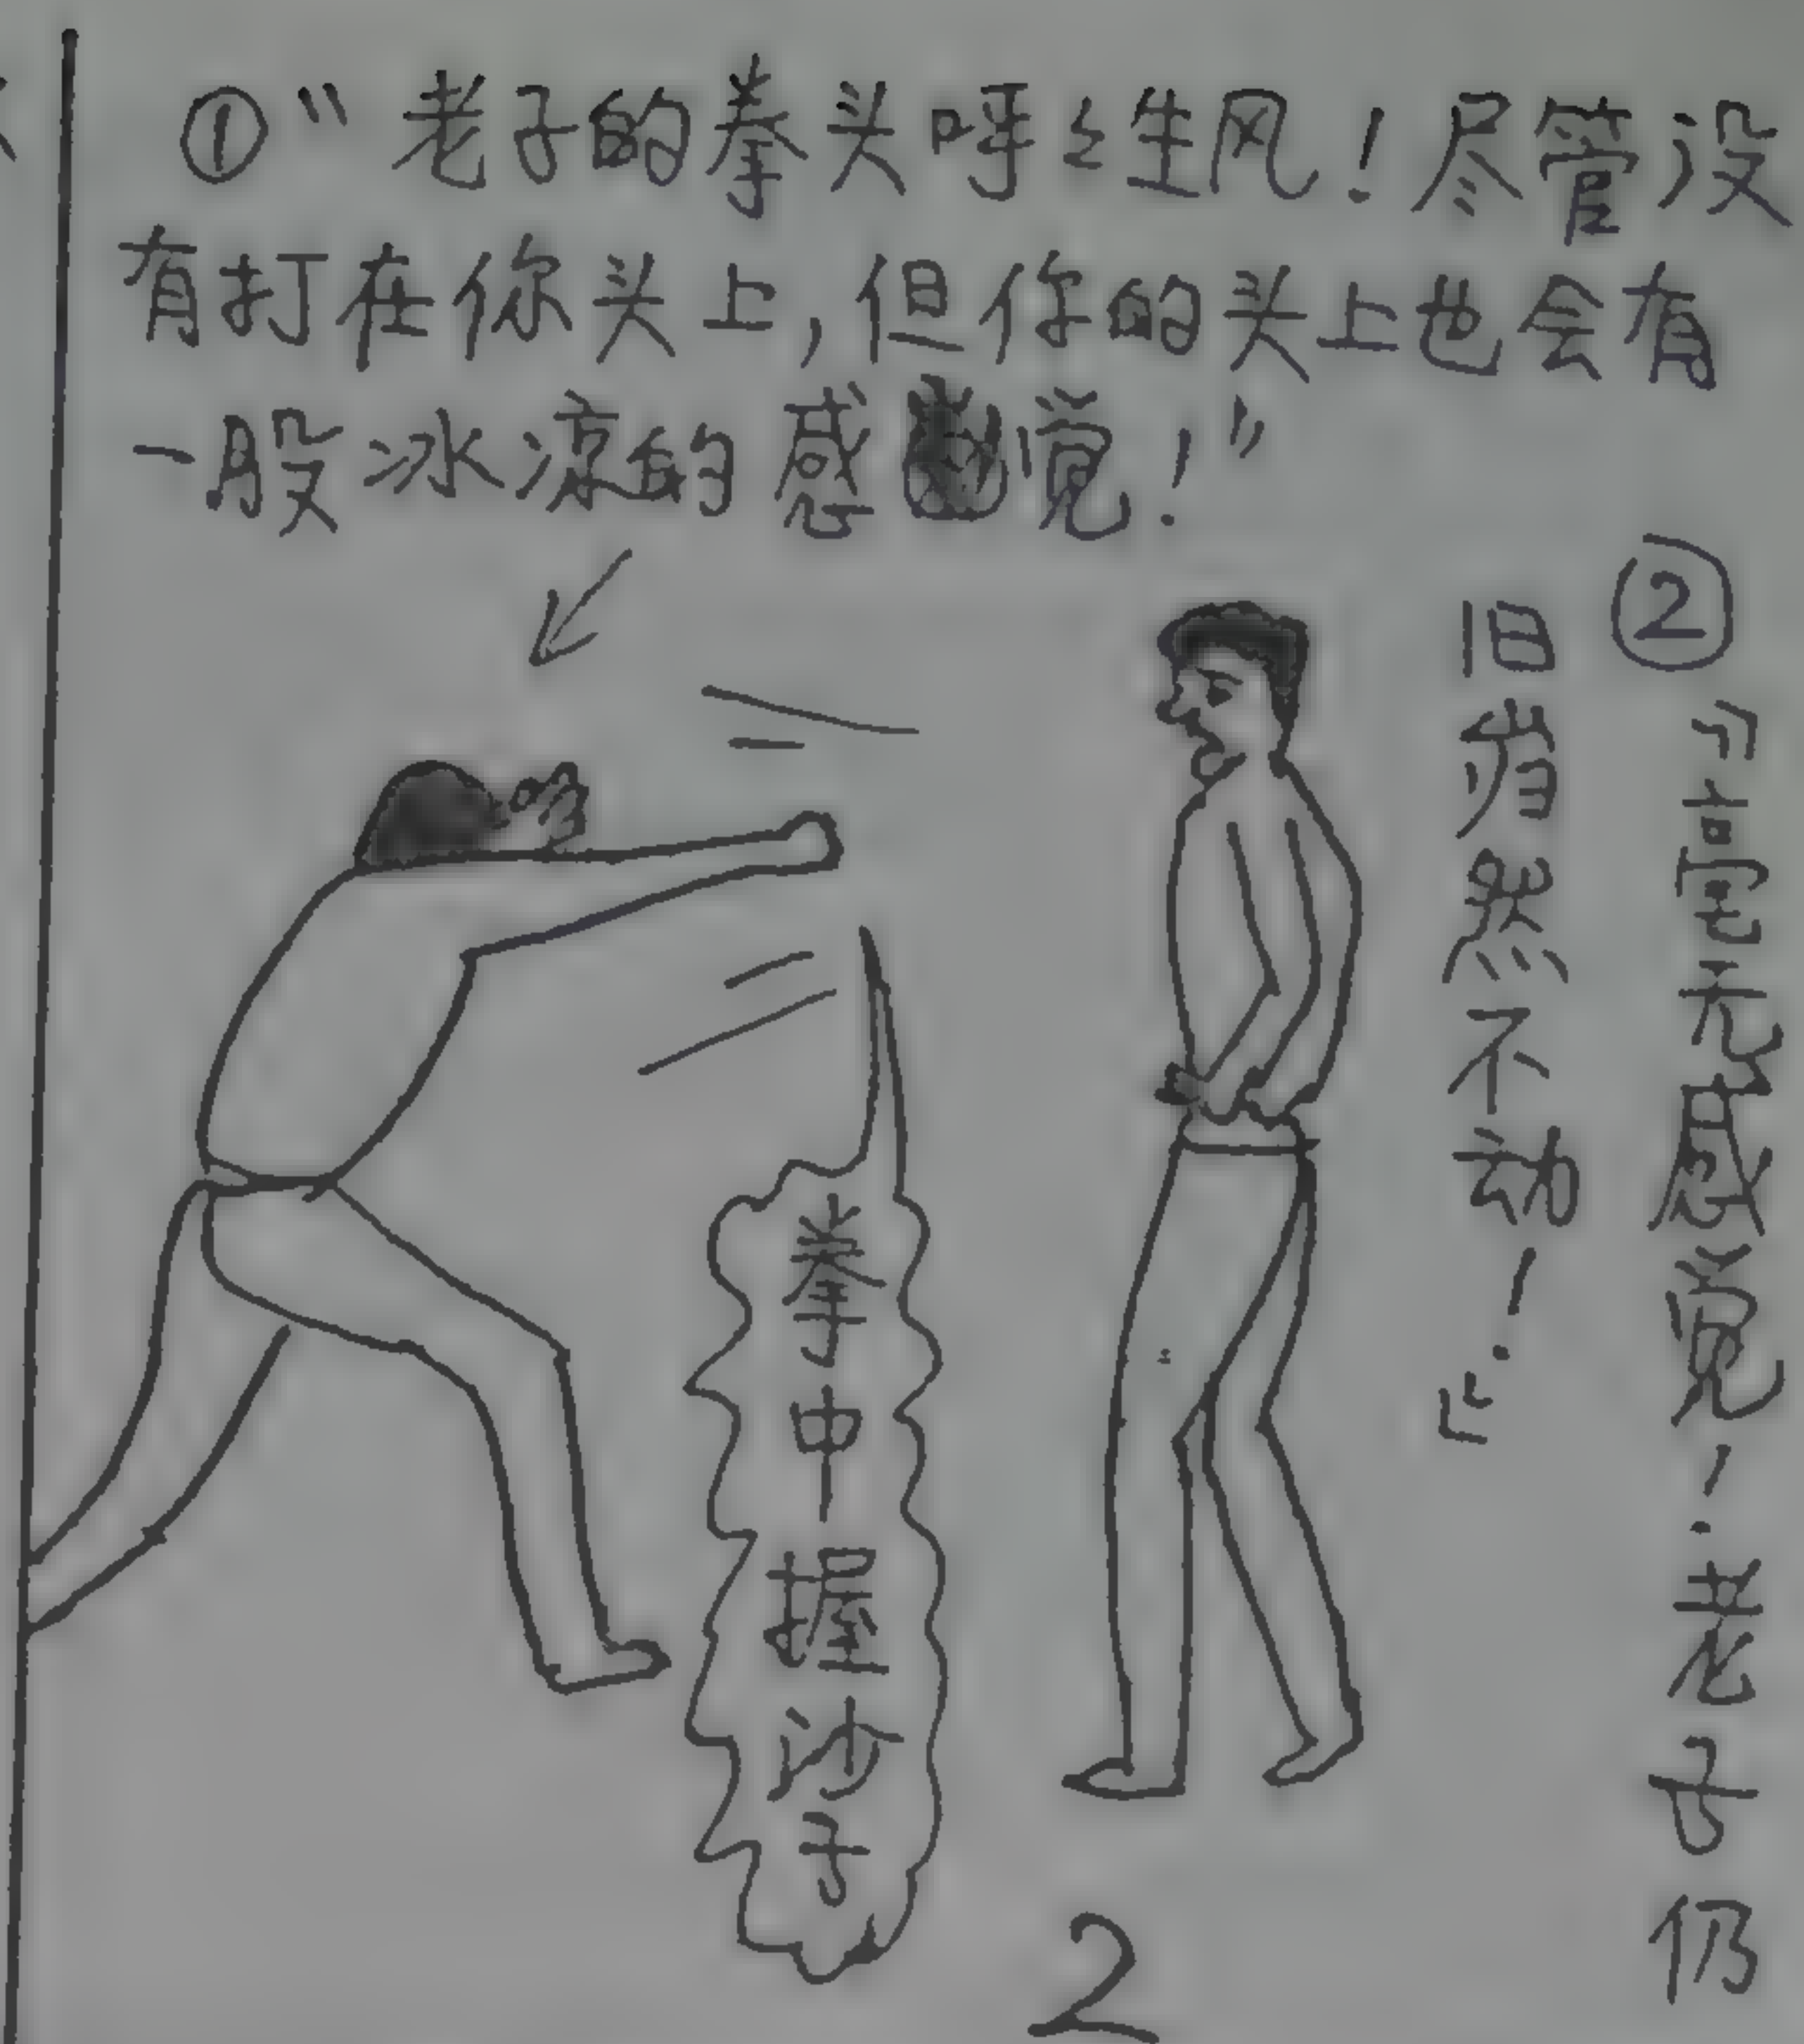 ①“老子的拳头呼々生风！尽管没
有打在你头上，但你的头上也会有
一股冰凉的感觉！”
②
“毫无感觉！老子仍
旧岿然不动！”
拳中握沙子
2